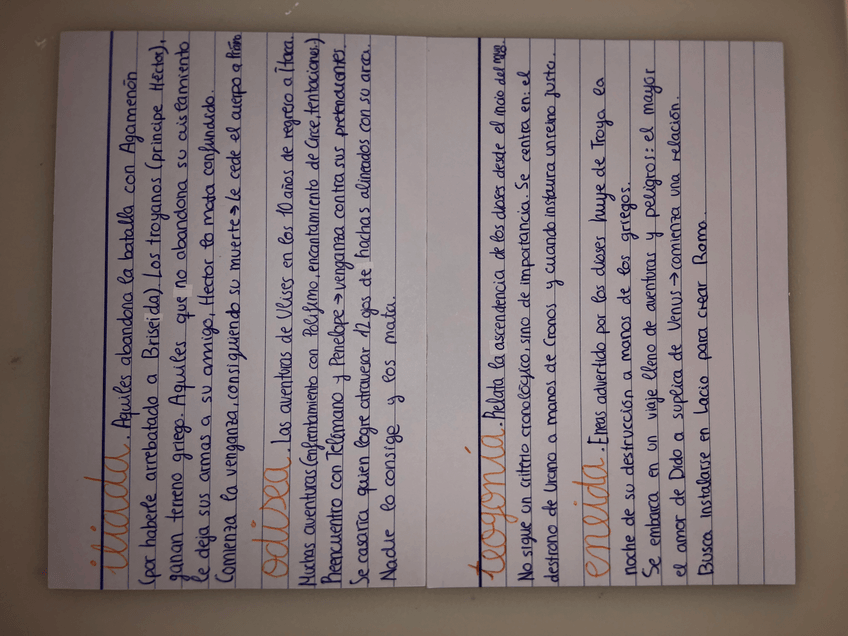 iliada. Aquiles abandona la batalla con Agamenón
(por haberle arrebatado a Briseida). Los troyanos (principe Héctor),
ganan terreno griego. Aquiles que no abandona su aislamiento
le deja sus armas a su amigo, Hector lo mata confundido.
Comienza la venganza, consiguiendo su muerte → le cede el cuerpo a
odisea. Las aventuras de Ulises en los 10 años de regreso a Ítaca.
Muchas aventuras (enfrentamiento con Polifemo, encantamiento de Circe, tentaciones)
Reencuentro con Telémano y Penelope → venganza contra sus pretendientes.
Se casaria quien logre atravesar 12 ojos de hachas alineados con su arco.
Nadie lo consige y los mata.
teogonía. Relata la ascendencia de los dioses desde el inicio del
No sigue un criterio cronológico, sino de importancia. Se centra en: el
destrono de Urano a manos de Cronos y cuando instaura un reino justo.
eneida. Eneas advertido por los dioses huye de Troya la
noche de su destrucción a manos de los griegos.
Se embarca en un viaje lleno de aventuras y peligros: el mayor
el amor de Dido a suplica de Venus → comienza una relación.
Busca instalarse en Lacio para crear Roma.